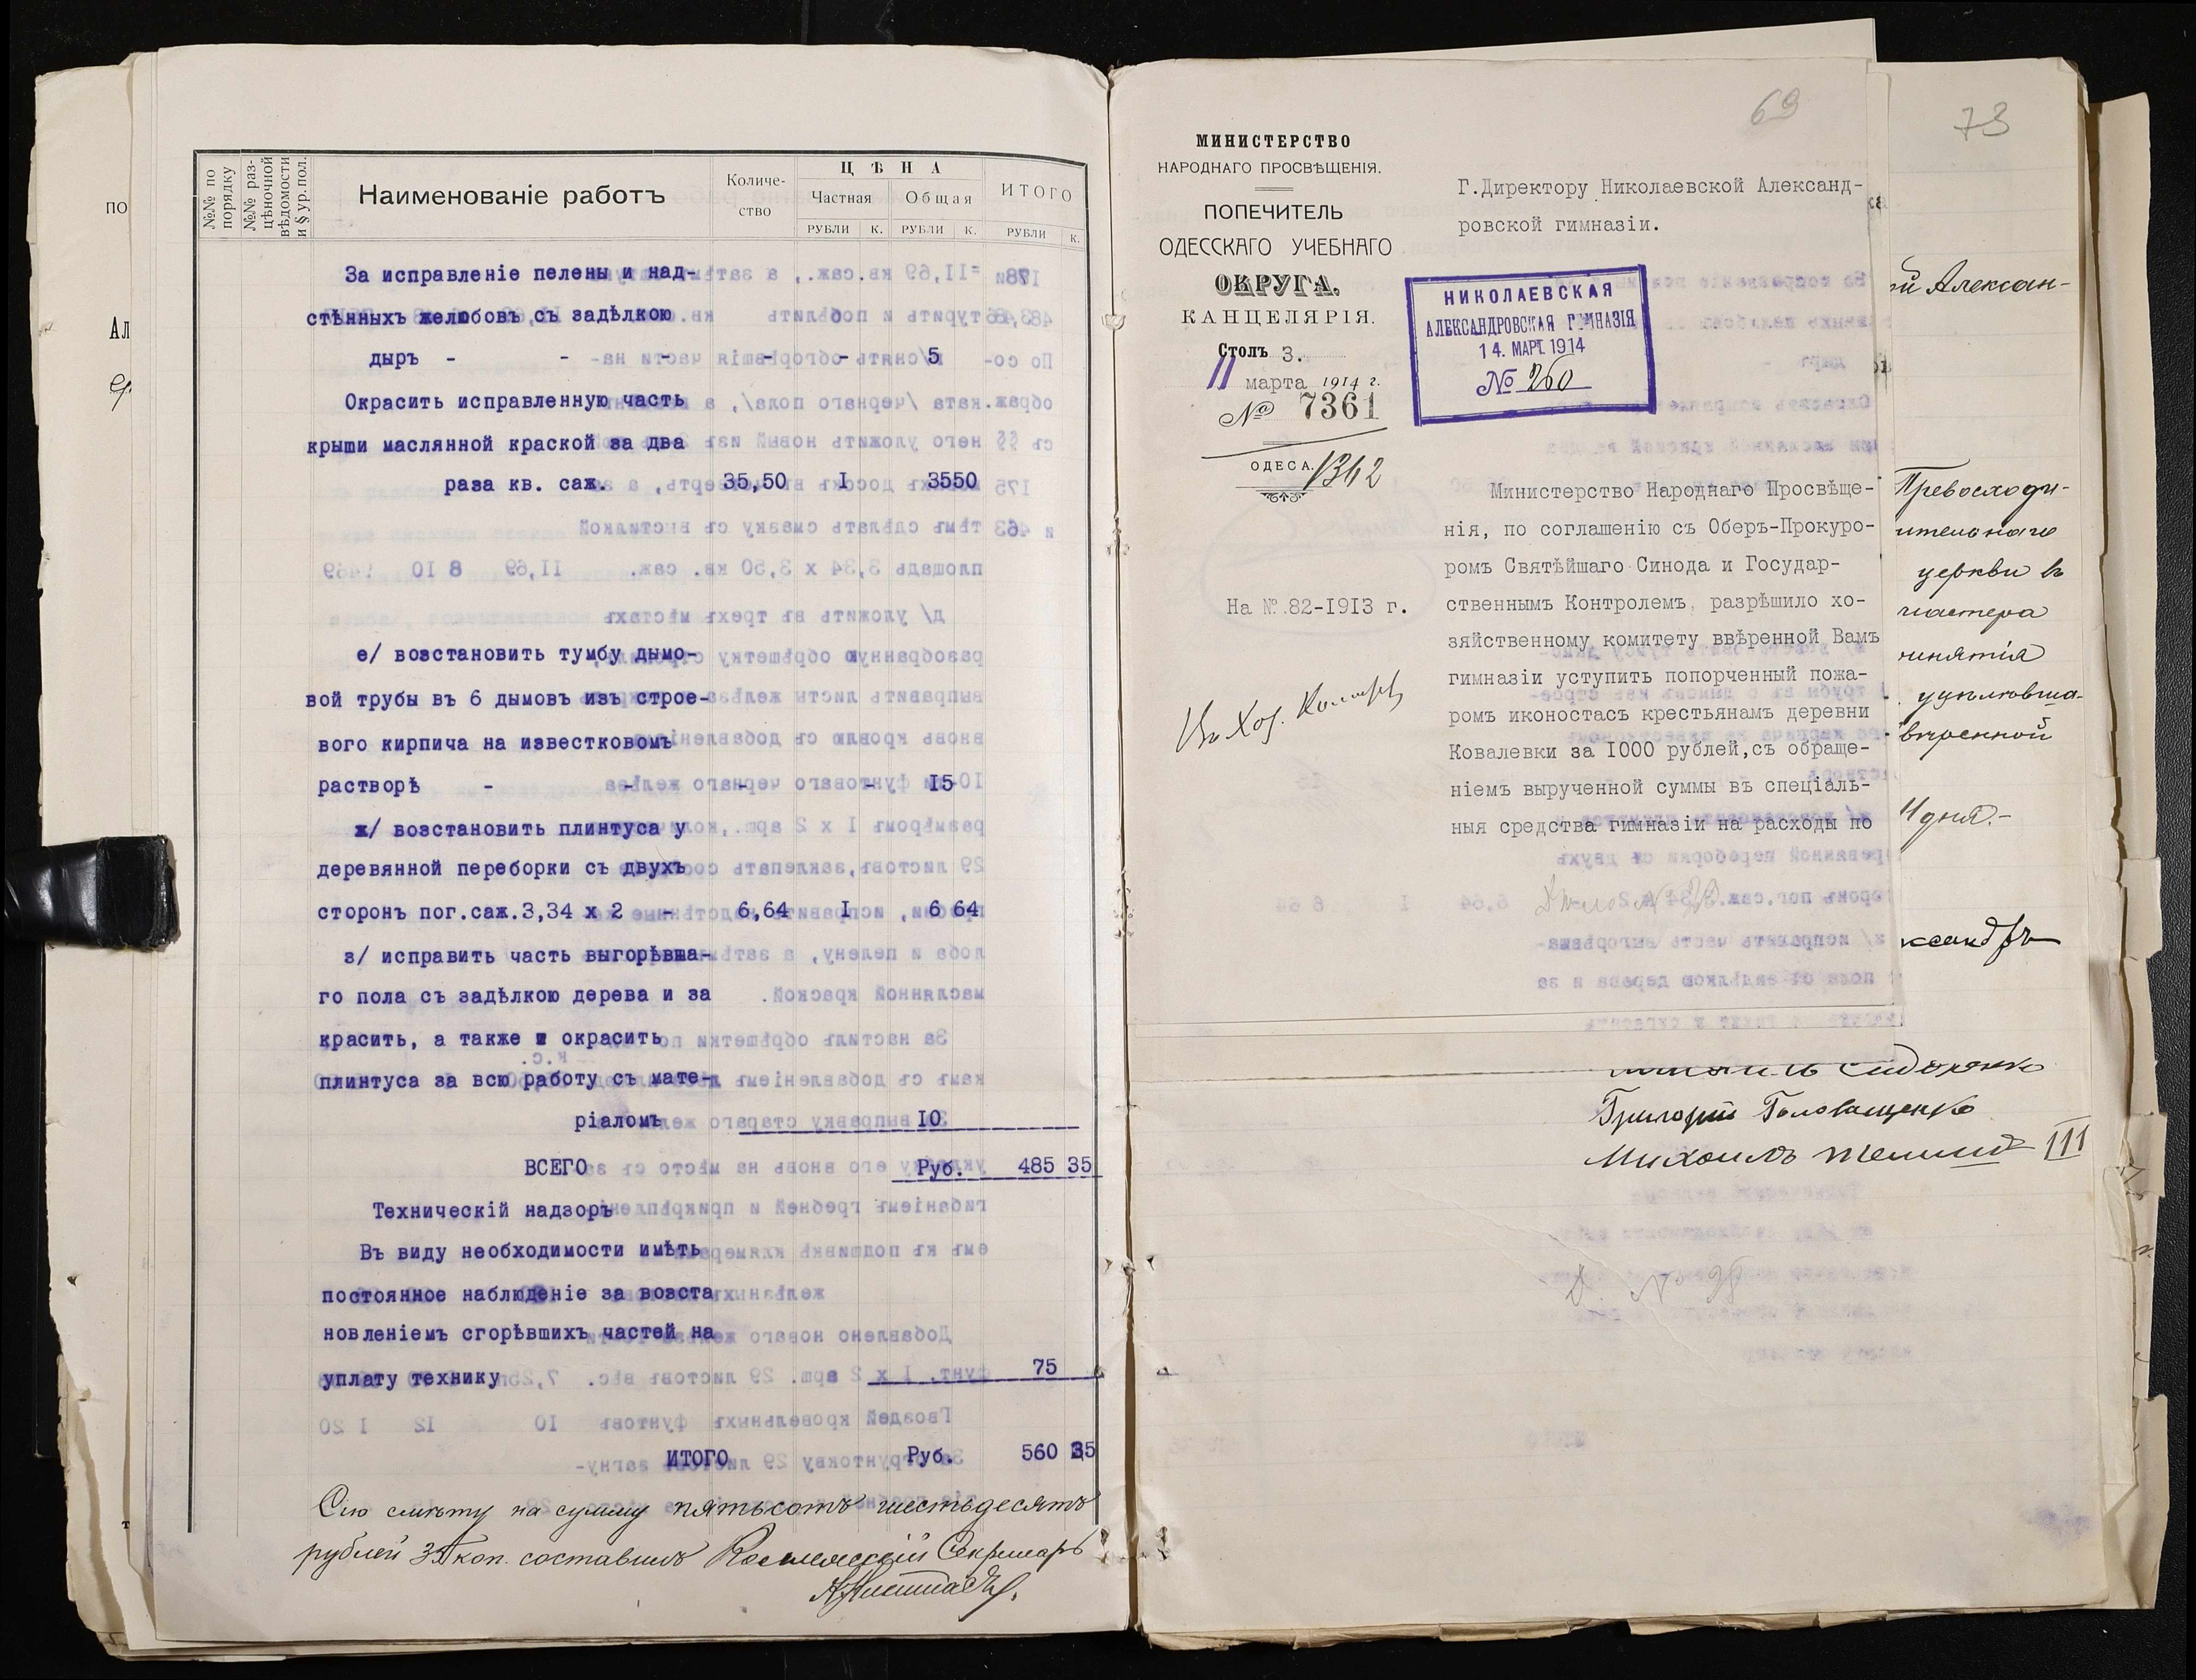 №№ по порядку
№№ раз-
цѣночной
вѣдомости
и § ур. пол.
Наименованіе работъ
Количе-
ство
ЦѢНА
Частная
Общая
ИТОГО
РУБЛИ К. РУБЛИ К. РУБЛИ К.
За исправленіе пелены и над-
стѣнныхъ желобовъ съ задѣлкою
дыръ - - - - - 5
Окрасить исправленную часть
крыши маслянной краской за два
раза кв. саж. 35,50 I 35 50
е/ возстановить тумбу дымо-
вой трубы въ 6 дымовъ изъ строе-
вого кирпича на известковомъ
растворѣ - - - - I5
ж/ возстановить плинтуса у
деревянной переборки съ двухъ
сторонъ пог.саж.3,34 х 2 - 6,64 I 6 64
з/ исправить часть выгорѣвша-
го пола съ задѣлкою дерева и за
красить, а также и окрасить
плинтуса за всю работу съ мате-
ріаломъ IO
ВСЕГО Руб. 485 35
Техническій надзоръ
Въ виду необходимости имѣть
постоянное наблюденіе за возста
новленіемъ сгорѣвшихъ частей на
уплату технику 75
ИТОГО Руб. 560 35
Сію смѣту на сумму пятьсотъ шестьдесятъ
рублей 35 коп. составилъ Секретарь
69
МИНИСТЕРСТВО
НАРОДНАГО ПРОСВѢЩЕНІЯ.
ПОПЕЧИТЕЛЬ
ОДЕССКАГО УЧЕБНАГО
ОКРУГА.
КАНЦЕЛЯРІЯ.
Столъ 3.
11 марта 1914 г.
№ 7361
ОДЕСА.
1362
На №.82-I9I3 г.
Въ Хоз.
Г.Директору Николаевской Александ-
ровской гимназіи.
НИКОЛАЕВСКАЯ
АЛЕКСАНДРОВСКАЯ ГИМНАЗІЯ
14. МАРТ. 1914
№ 260
Министерство Народнаго Просвѣще-
нія, по соглашенію съ Оберъ-Прокуро-
ромъ Святѣйшаго Синода и Государ-
ственнымъ Контролемъ, разрѣшило хо-
зяйственному комитету ввѣренной Вамъ
гимназіи уступить попорченный пожа-
ромъ иконостасъ крестьянамъ деревни
Ковалевки за I000 рублей,съ обраще-
ніемъ вырученной суммы въ спеціаль-
ныя средства гимназіи на расходы по
73
й Алексан-
Превосходи-
ительнаго
церкви въ
мастера
инятія
уцѣлѣвша-
ввѣренной
дня.-
ксандръ
Григорій Головащенко
Михаилъ
III
Д. № 98
по
Ал